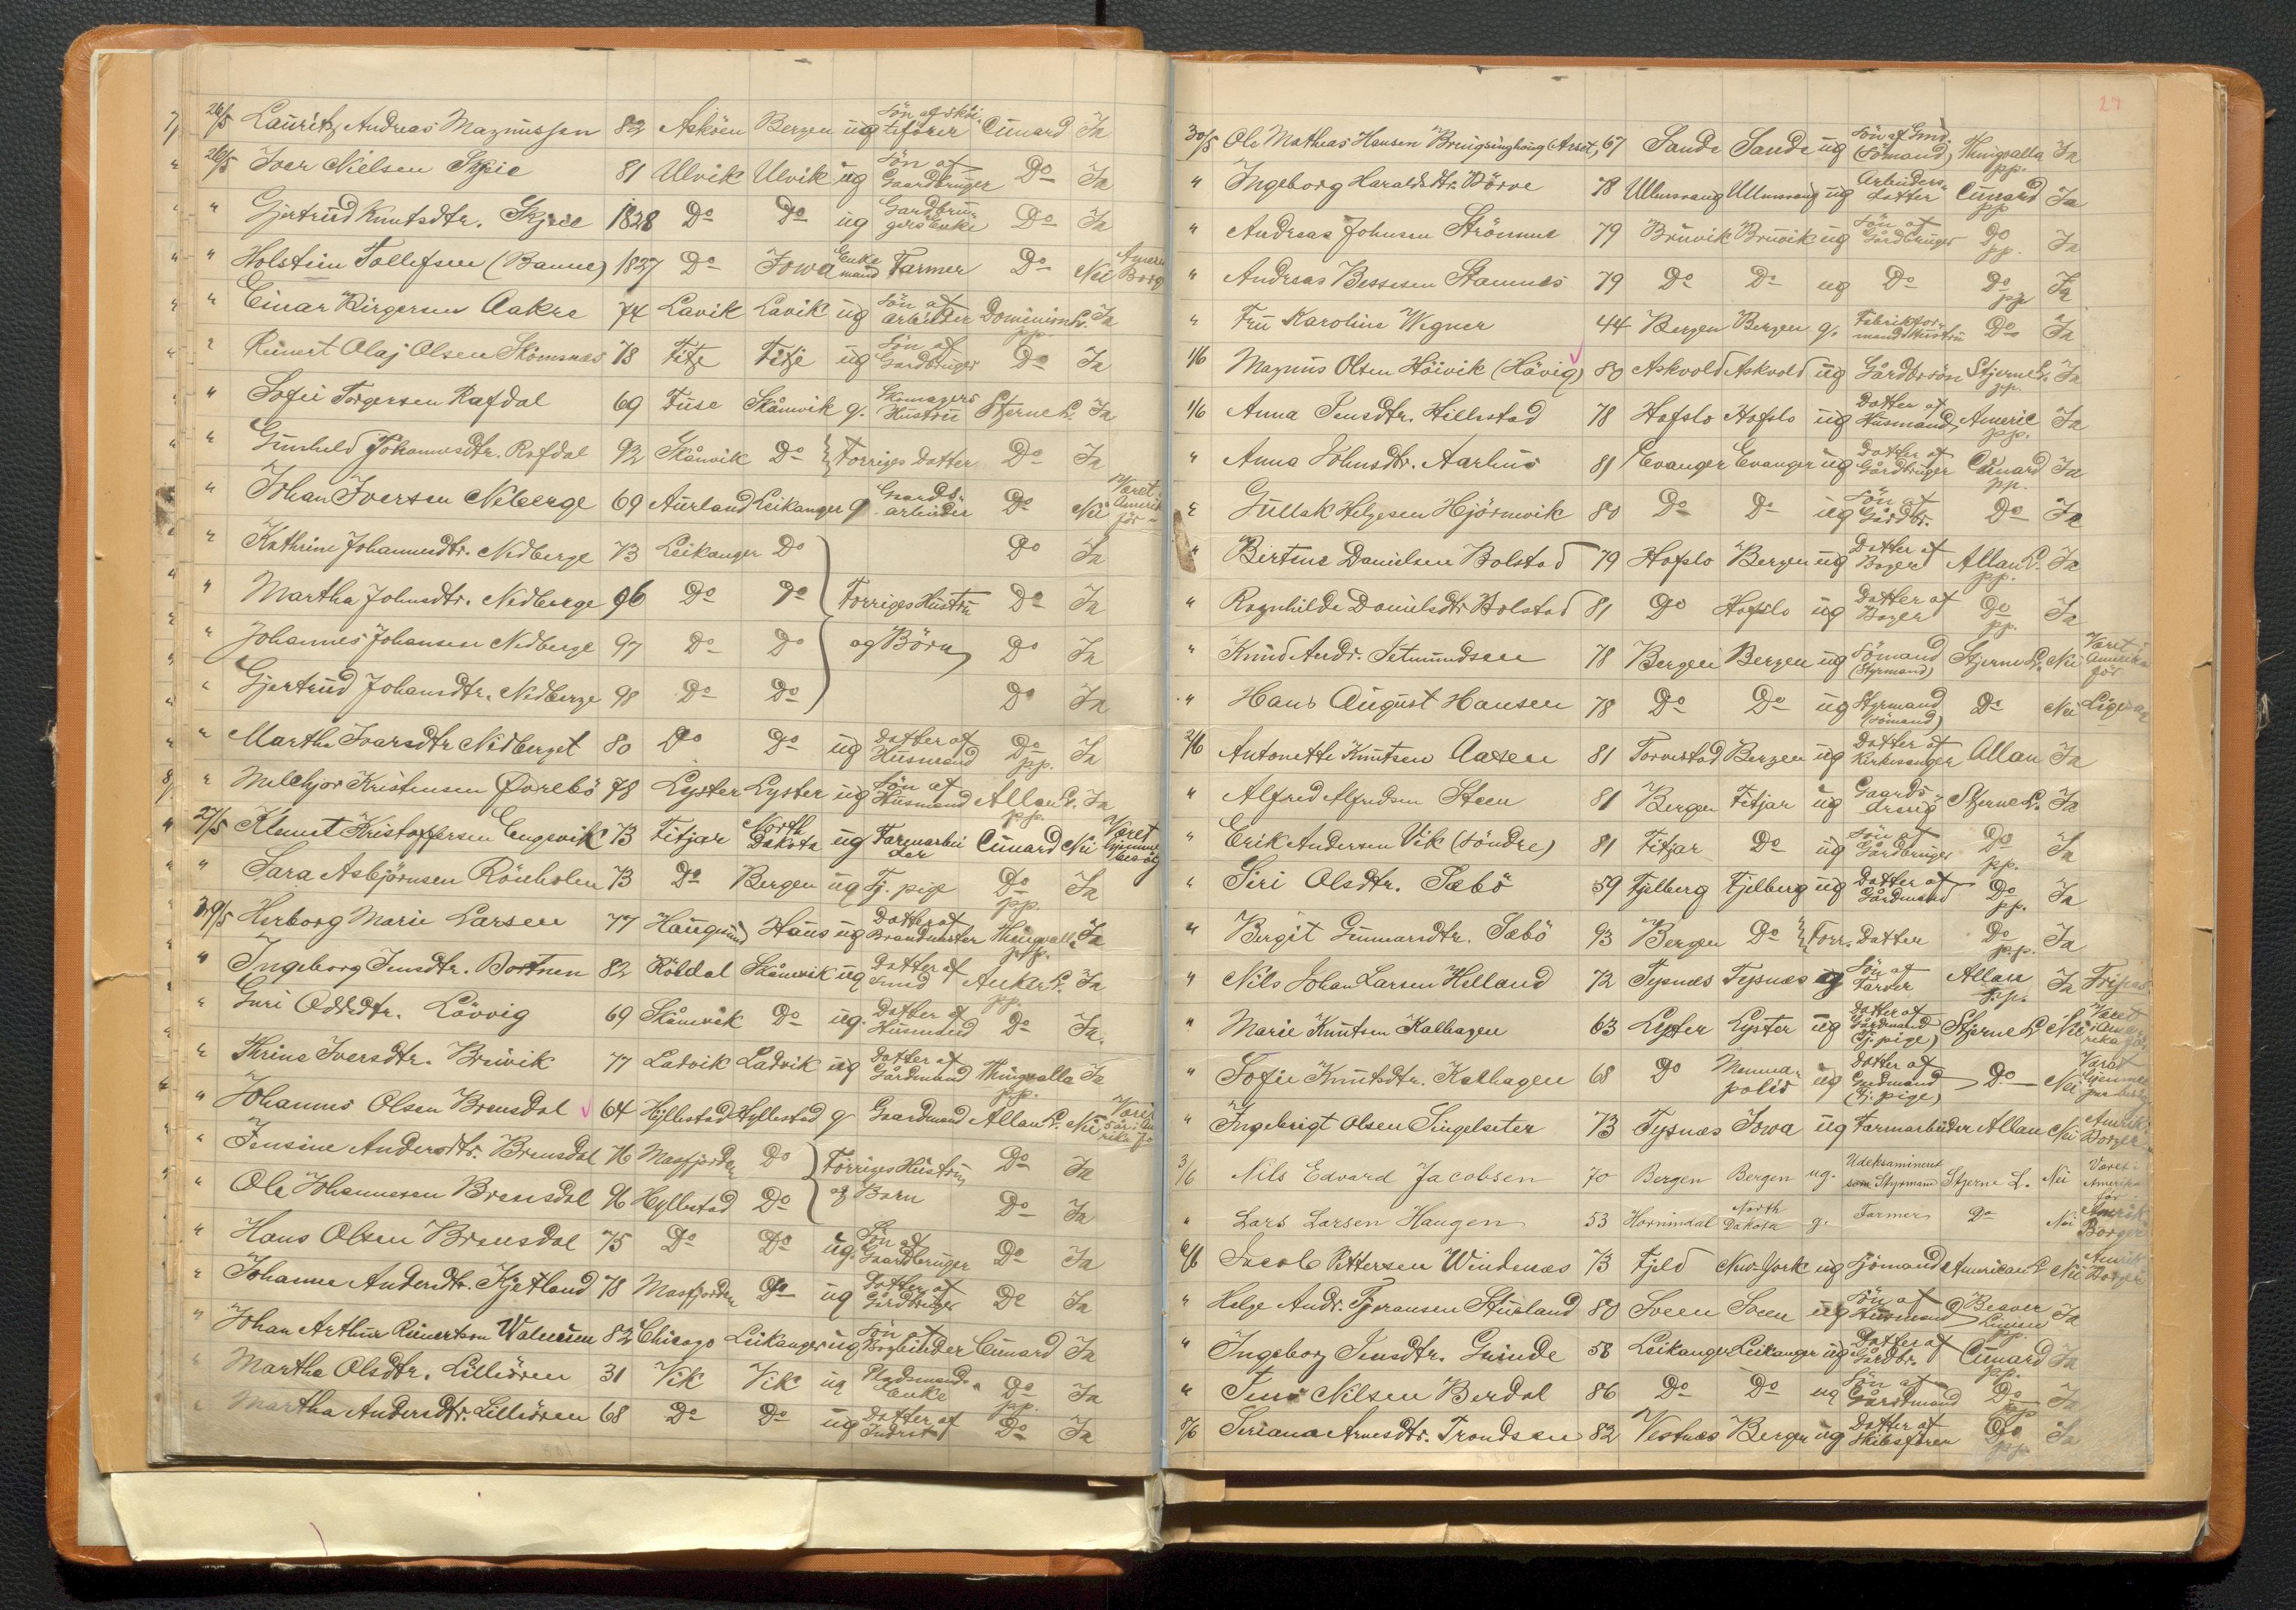 7/ 26/5 Lauritz Andreas Magnussen 82 Askøen Bergen ug Søn af Ski- tefører Cunard Ja
" 26/5 Iver Nielsen Skjeie 81 Ulvik Ulvik ug Søn af Gaardbruger Do Ja
" " Gjertrud Knutsdtr. Skjeie 1828 Do Do ug Gardbru- gers Enke Do Ja
" " Holstein Tollefsen (Banne) 1827 Do Iowa Enke mand Farmer Do Nei Amerik Borg
" " Einar Birgersen Aakre 74 Lavik Lavik ug Søn af arbeider Dominion L. pp. Ja
" " Reinert Olaj Olsen Skömsnes 78 Fitje Fitje ug Søn af Gardbruger Do Ja
" " Sofie Torgersen Rafdal 69 Fuse Skånvik g. Skomagers Hustru Stjerne L. Ja
" " Gunhild Johannesdtr. Rafdal 92 Skånvik Do Forriges Datter Do Ja
" " Johan Iversen Neberge 69 Aurland Leikanger g. Gaards- arbeider Do Nei Været i Amerik før
" " Kathrine Johannesdtr. Nedberge 73 Leikanger Do Do Ja
" " Martha Johnsdtr. Nedberge 96 Do Do Forriges Hustru Do Ja
" " Johannes Johansen Nedberge 97 Do Do og Börn Do Ja
" " Gjertrud Johansdtr. Nedberge 98 Do Do Do Ja
" " Martha Ivarsdtr Nedberget 80 Do Do ug Datter af Husmand Do pp. Ja
8/ " Melchjor Kristensen Øvrebö 78 Lyster Lyster ug Søn af Husmand Allan L. pp. Ja
" 27/5 Klemet Kristoffersen Engevik 73 Fitjar North Dakota ug Farmarbei der Cunard Nei Været hjemme besøg
" " Sara Asbjörnsen Rönholen 73 Do Bergen ug Tj. pige Do pp. Ja
" 29/5 Herborg Marie Larsen 77 Haugesund Haus ug Datter af Brandmester Thingvalla pp. Ja
" " Ingeborg Jensdtr. Bortnen 82 Röldal Skånevik ug Datter af Smed Anker L. pp. Ja
" " Guri Oddsdtr. Lövvig 69 Skånevik Do ug. Datter af Husmand Do Ja.
" " Thrine Iversdtr. Breivik 77 Ladvik Ladvik ug Datter af Gårdmand Thingvalla pp. Ja
" " Johannes Olsen Brensdal 64 Hyllestad Hyllestad g Gaardmand Allan L. Nei Været i Ame rika før
" " Jensine Andersdtr. Brensdal 76 Masfjorden Do Forriges Hustru Do Ja
" " Ole Johannesen Brensdal 96 Hyllestad Do og Barn Do Ja
" " Hans Olsen Brensdal 75 Do Do ug. Søn af Gaardbruger Do Ja
" " Johanne Andersdtr. Kjetland 78 Masfjorden Do ug Datter af Gårdbruger Do Ja
" " Johan Arthur Reinertson Walneum 82 Chicago Leikanger ug Søn af Bogbinder Cunard Ja
" " Martha Olsdtr. Lilleören 31 Vik Vik ug Pladsmands Enke Do pp. Ja
" " Martha Andersdtr. Lilleören 68 Do Do ug Datter af Indrest Do Ja
27
30/5 Ole Mathias Hansen Bringsinghaug (Arset) 67 Sande Sande ug Søn af Gmd. (Sömand) Thingvalla pp. Ja
" Ingeborg Haraldsdtr. Börve 78 Ullensvang Ullensvang ug Arbeiders- datter Cunard pp Ja
" Andreas Johnsen Strömme 79 Bruvik Bruvik ug Søn af Gårdbruger Do pp. Ja
" Andreas Bessesen Stamnes 79 Do Do ug Do Do pp Ja
" Fru Karoline Wegner 44 Bergen Bergen g. Fabrikfor- mands Hustru Do Ja
1/6 Magnus Olsen Höivik (Hövig) 80 Askvold Askvold ug Gårdbrsön Stjerne L. pp. Ja
1/6 Anna Jensdtr. Hillestad 78 Hafslo Hafslo ug Datter af Husmand Americ pp. Ja
" Anna Johnsdtr. Aarhus 81 Evanger Evanger ug Datter af Gårdbruger Cunard pp. Ja
" Gullak Helgesen Hjörnevik 80 Do Do ug Søn af Gårdbr. Do Ja
" Bertine Danielsen Bolstad 79 Hafslo Bergen ug Datter af Bager Allan L. pp. Ja
" Ragnhilde Danielsdtr Bolstad 81 Do Hafslo ug Datter af Bager Do pp. Ja
" Knud Andr. Setmundsen 78 Bergen Bergen ug Sömand (Styrmand) Stjerne L. Nei Været i Amerika før
" Hans August Hansen 78 Do Do ug Styrmand (sömand) Do Nei Ligesaa
2/6 Antonette Knutsen Aasen 81 Torvestad Bergen ug Datter af Kirkesanger Allan Ja
" Alfred Alfredsen Steen 81 Bergen Fitjar ug Gaards- dreng Stjerne L. Ja
" Erik Andersen Vik (söndre) 81 Fitjar Do ug Søn af Gårdbruger Do pp. Ja
" Siri Olsdtr. Sæbö 59 Fjelberg Fjelberg ug Datter af Gårdmand Do pp. Ja
" Bergit Gunnarsdtr. Sæbö 93 Bergen Do Forr. Datter Do pp. Ja
" Nils Johan Larsen Helland 72 Tysnes Tysnes ug Søn af Farver Allan pp. Ja Fripas
" Marie Knutsen Kalhagen 63 Lyster Lyster ug Datter af Gårdmand (Tj. pige) Stjerne L Nei Været i Ame rika før
" Sofie Knutsdtr. Kalhagen 68 Do Mennea- polis ug Datter af Gardmand (Tj. pige) Do Nei Været hjemme
" Ingebrigt Olsen Singelseter 73 Tysnes Iowa ug Farmarbeider Allan Nei Amerik. Borger
3/6 Nils Edvard Jacobsen 70 Bergen Bergen ug. Udeksamineret som Styrmand Stjerne L. Nei Været i Amerika før
" Lars Larsen Haugen 53 Hornindal North Dakota g. Farmer Do Nei Amerik Borger
6/6 Jacob Pettersen Windenes 73 Fjeld New-York ug Sjömand American L Nei Amerik Borger
" Helge Andr. Tjeransen Stueland 80 Sveen Sveen ug Søn af Husmand Beaver Linien pp. Ja
" Ingeborg Jensdtr. Grinde 58 Leikanger Leikanger ug Datter af Gårdbr. Cunard pp. Ja
" Jens Nilsen Berdal 86 Do Do ug Søn af Gårdmand Do pp Ja
8/6 Seriana Arnesdtr. Trondsen 82 Vestnes Bergen ug Datter af Skibsfören Do pp. Ja